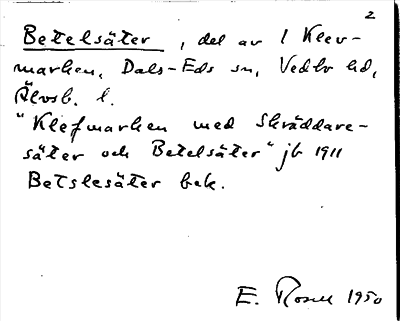 2
Betelsäter, del av 1 Klev-
marken, Dals-Eds sn, Vedbo hd,
Älvsb. l.
"Klefmarken med Skräddare-
säter och Betelsäter" jb 1911
Betslesäter bek.
E. Rosell 1950